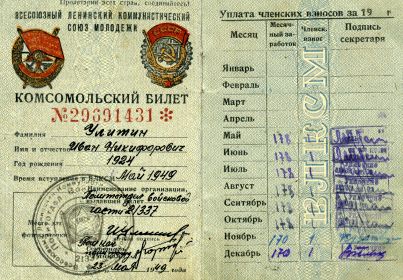 Пролетарии всех стран, соединяйтесь!
ВСЕСОЮЗНЫЙ ЛЕНИНСКИЙ КОММУНИСТИЧЕСКИЙ
СОЮЗ МОЛОДЕЖИ
КОМСОМОЛЬСКИЙ БИЛЕТ
№29691431
Фамилия Улитин
Имя и отчество Иван Никифорович
Год рождения 1924
Время вступления в ВЛКСМ Май 1949
Наименование организации,
выдавшей билет Политотдел войсковой
части 21337
1949 г.
Уплата членских взносов за 19 г
Месяц
Месячный заработок
Членск. взнос
Подпись секретаря
Январь
Февраль
Март
Апрель
Май 178
Июнь 178
Июль 178
Август 178
Сентябрь 178
Октябрь 178
Ноябрь 170 1
Декабрь 170 1
ВЛКСМ